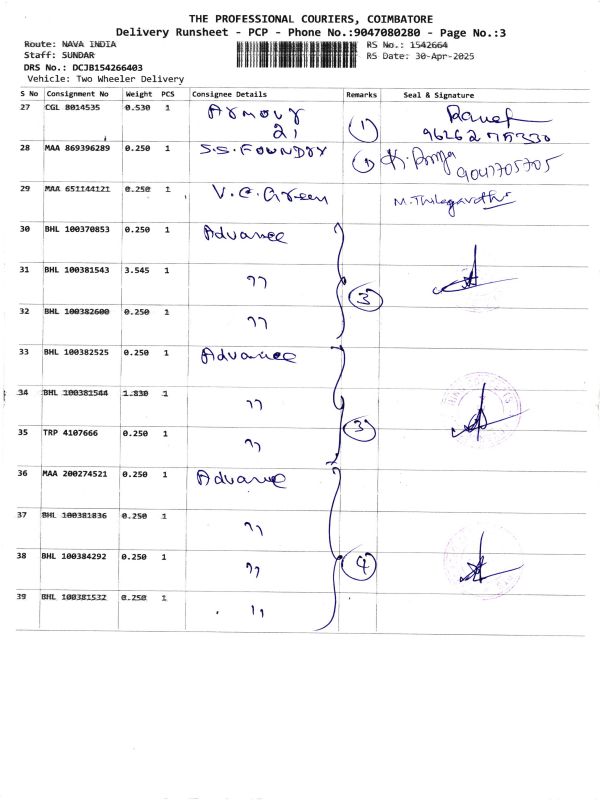 THE PROFESSIONAL COURIERS, COIMBATORE
Delivery Runsheet - PCP - Phone No.:9047080280 - Page No.:3
Route: NAVA INDIA RS No.: 1542664
Staff: SUNDAR RS Date: 30-Apr-2025
DRS No.: DCJB154266403
Vehicle: Two Wheeler Delivery
S No Consignment No Weight PCS Consignee Details Remarks Seal & Signature
27 CGL 8014535 0.530 1 Armour
21 1
28 MAA 869396289 0.250 1 S.S. FOUNDRY 1 9047705705
29 MAA 651144121 0.250 1 V.C. Green M. Thilagavathi
30 BHL 100370853 0.250 1 Advance
31 BHL 100381543 3.545 1 " 3
32 BHL 100382600 0.250 1 "
33 BHL 100382525 0.250 1 Advance
34 BHL 100381544 1.830 1 "
35 TRP 4107666 0.250 1 " 3
36 MAA 200274521 0.250 1 Advance
37 BHL 100381836 0.250 1 "
38 BHL 100384292 0.250 1 " 4
39 BHL 100381532 0.250 1 "